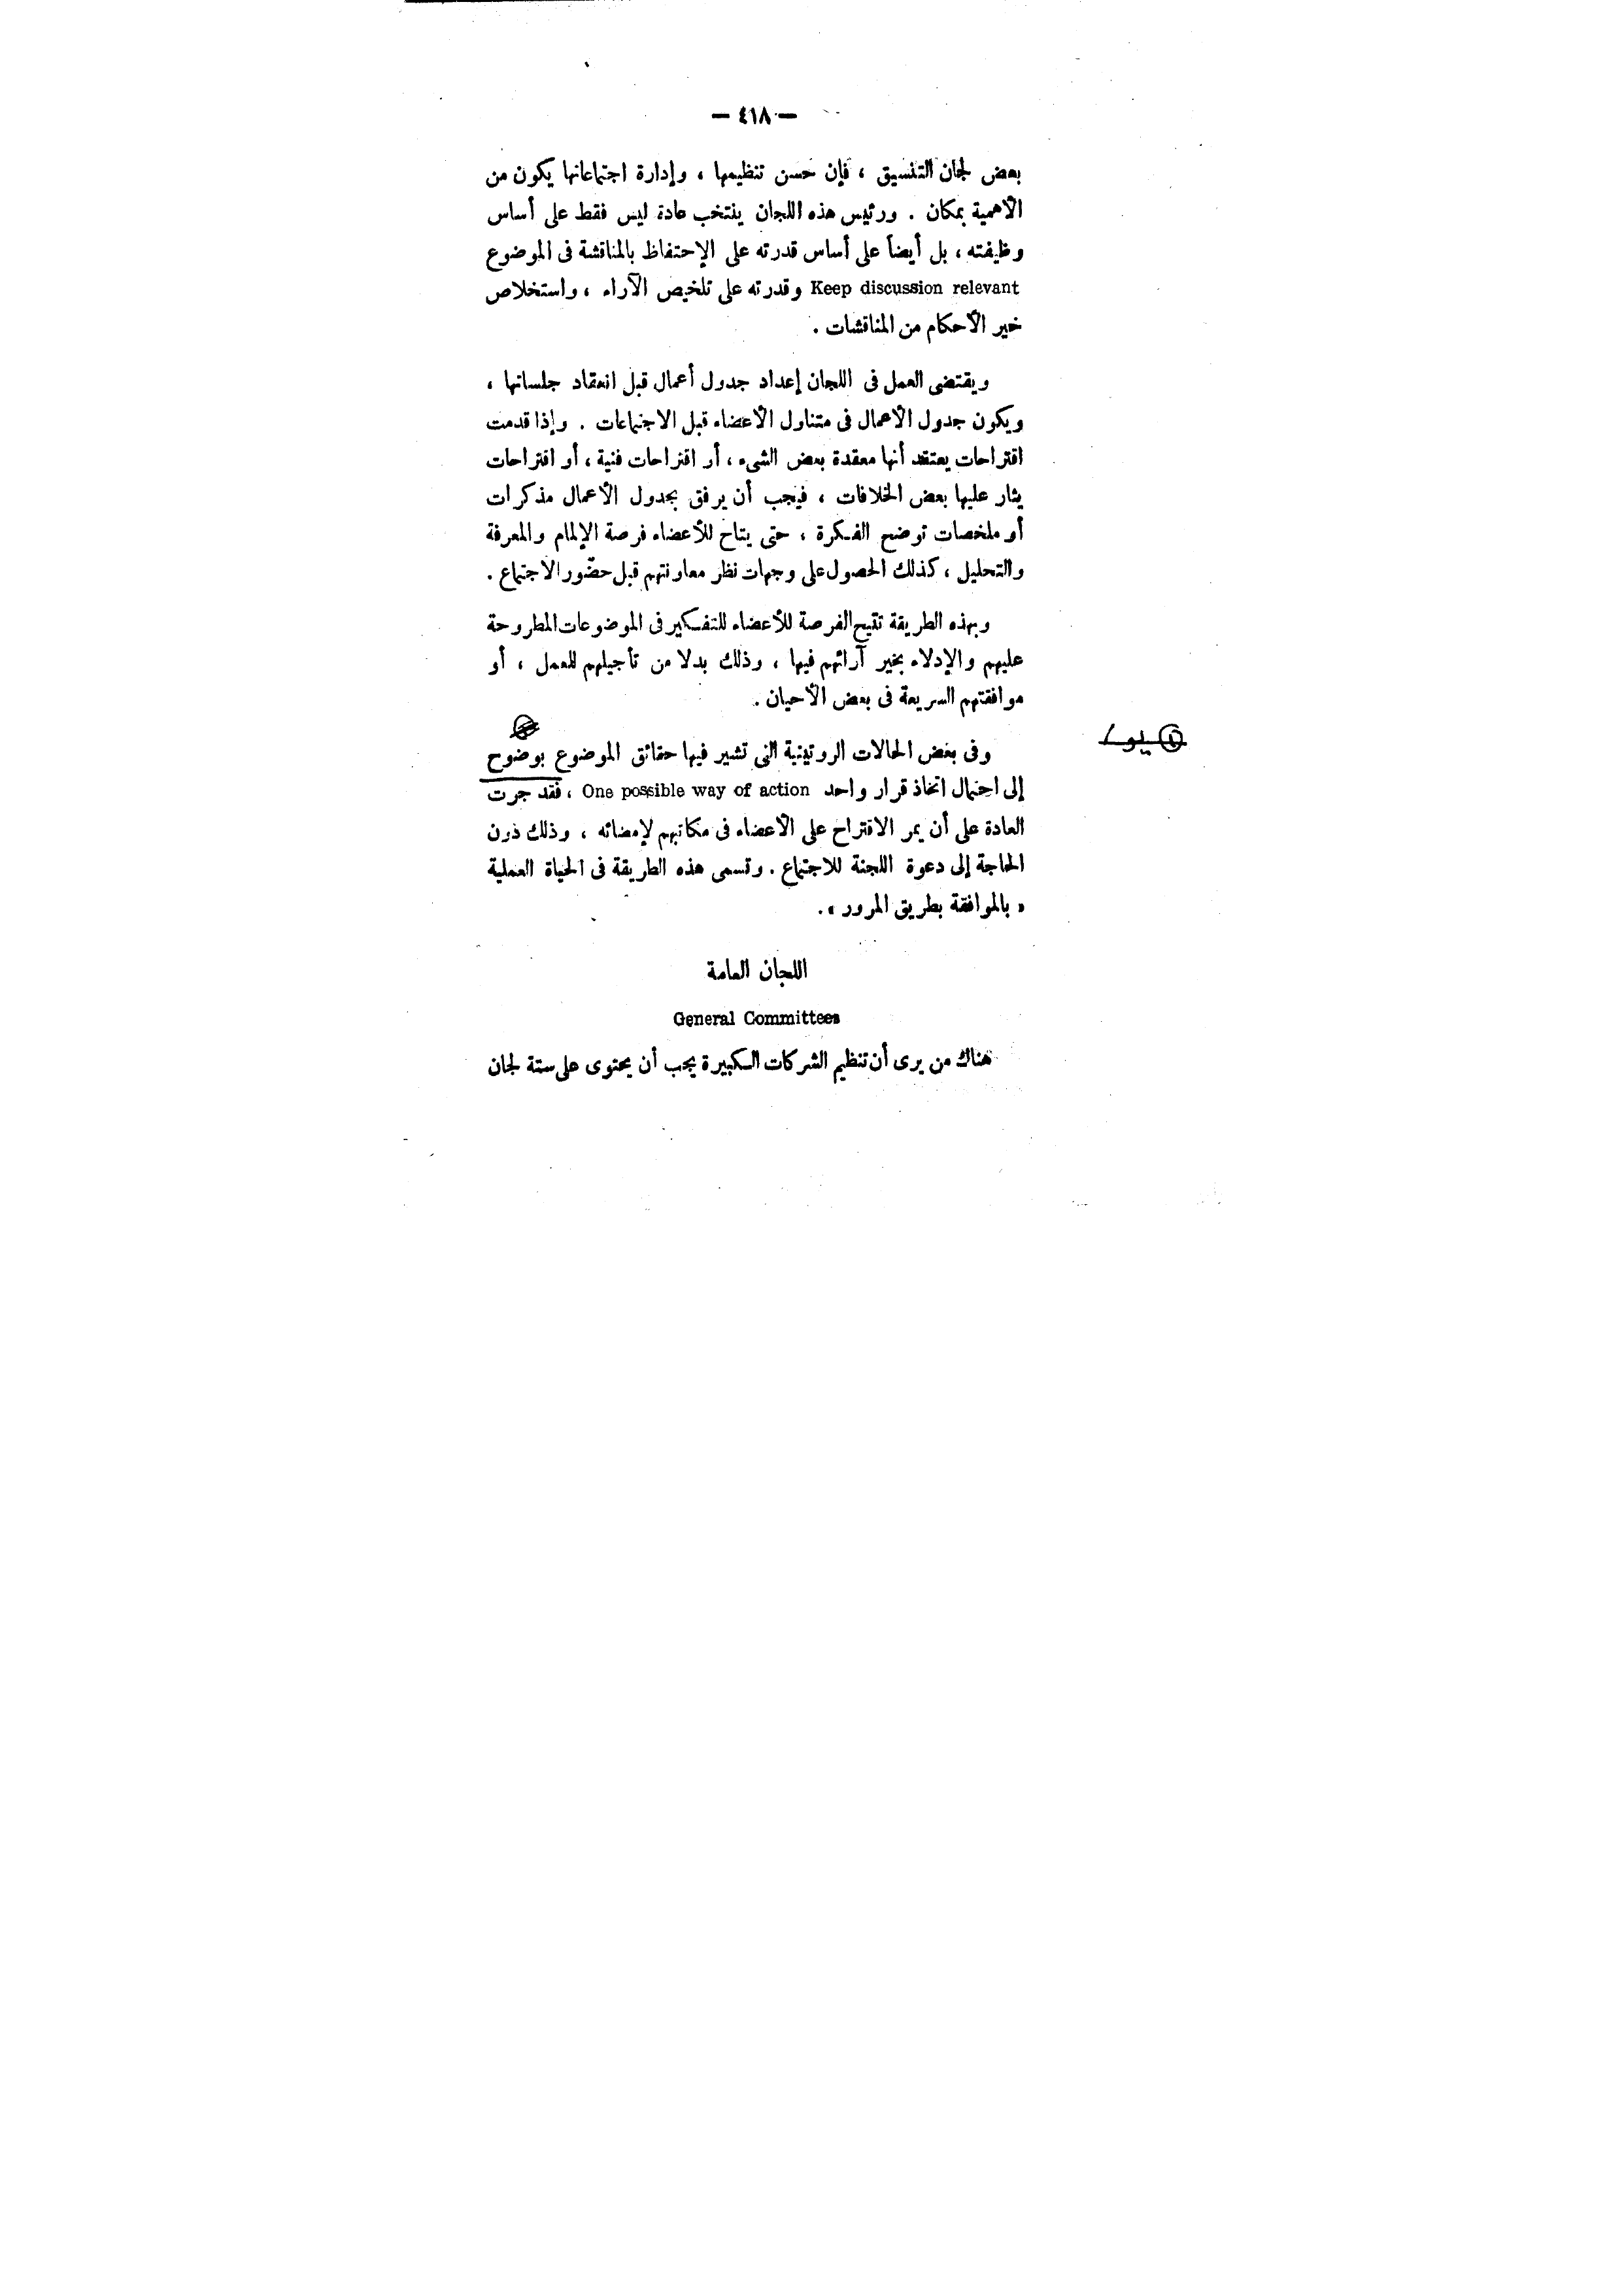 — ٤١٨ —
بعض لجان التنسيق ، فإن حسن تنظيمها ، وإدارة اجتماعاتها يكون من
الأهمية بمكان . ورئيس هذه اللجان ينتخب عادة ليس فقط على أساس
وظيفته ، بل أيضاً على أساس قدرته على الإحتفاظ بالمناقشة فى الموضوع
Keep discussion relevant وقدرته على تلخيص الآراء ، واستخلاص
خير الأحكام من المناقشات .
ويقتضى العمل فى اللجان إعداد جدول أعمال قبل انعقاد جلساتها ،
ويكون جدول الأعمال فى متناول الأعضاء قبل الاجتماعات . وإذا قدمت
اقتراحات يعتقد أنها معقدة بعض الشىء ، أو اقتراحات فنية ، أو اقتراحات
يثار عليها بعض الخلافات ، فيجب أن يرفق بجدول الأعمال مذكرات
أو ملخصات توضح الفكرة ، حتى يتاح للأعضاء فرصة الإلمام والمعرفة
والتحليل ، كذلك الحصول على وجهات نظر معاونتهم قبل حضور الاجتماع .
وبهذه الطريقة تتيح الفرصة للأعضاء للتفكير فى الموضوعات المطروحة
عليهم والإدلاء بخير آرائهم فيها ، وذلك بدلا من تأجيلهم للعمل ، أو
موافقتهم السريعة فى بعض الأحيان .
وفى بعض الحالات الروتينية التى تشير فيها حقائق الموضوع بوضوح
إلى احتمال اتخاذ قرار واحد One possible way of action ، فقد جرت
العادة على أن يمر الاقتراح على الأعضاء فى مكاتبهم لإمضائه ، وذلك دون
الحاجة إلى دعوة اللجنة للاجتماع . وتسمى هذه الطريقة فى الحياة العملية
« بالموافقة بطريق المرور » .
اللجان العامة
General Committees
هناك من يرى أن تنظيم الشركات الكبيرة يجب أن يحتوى على ستة لجان